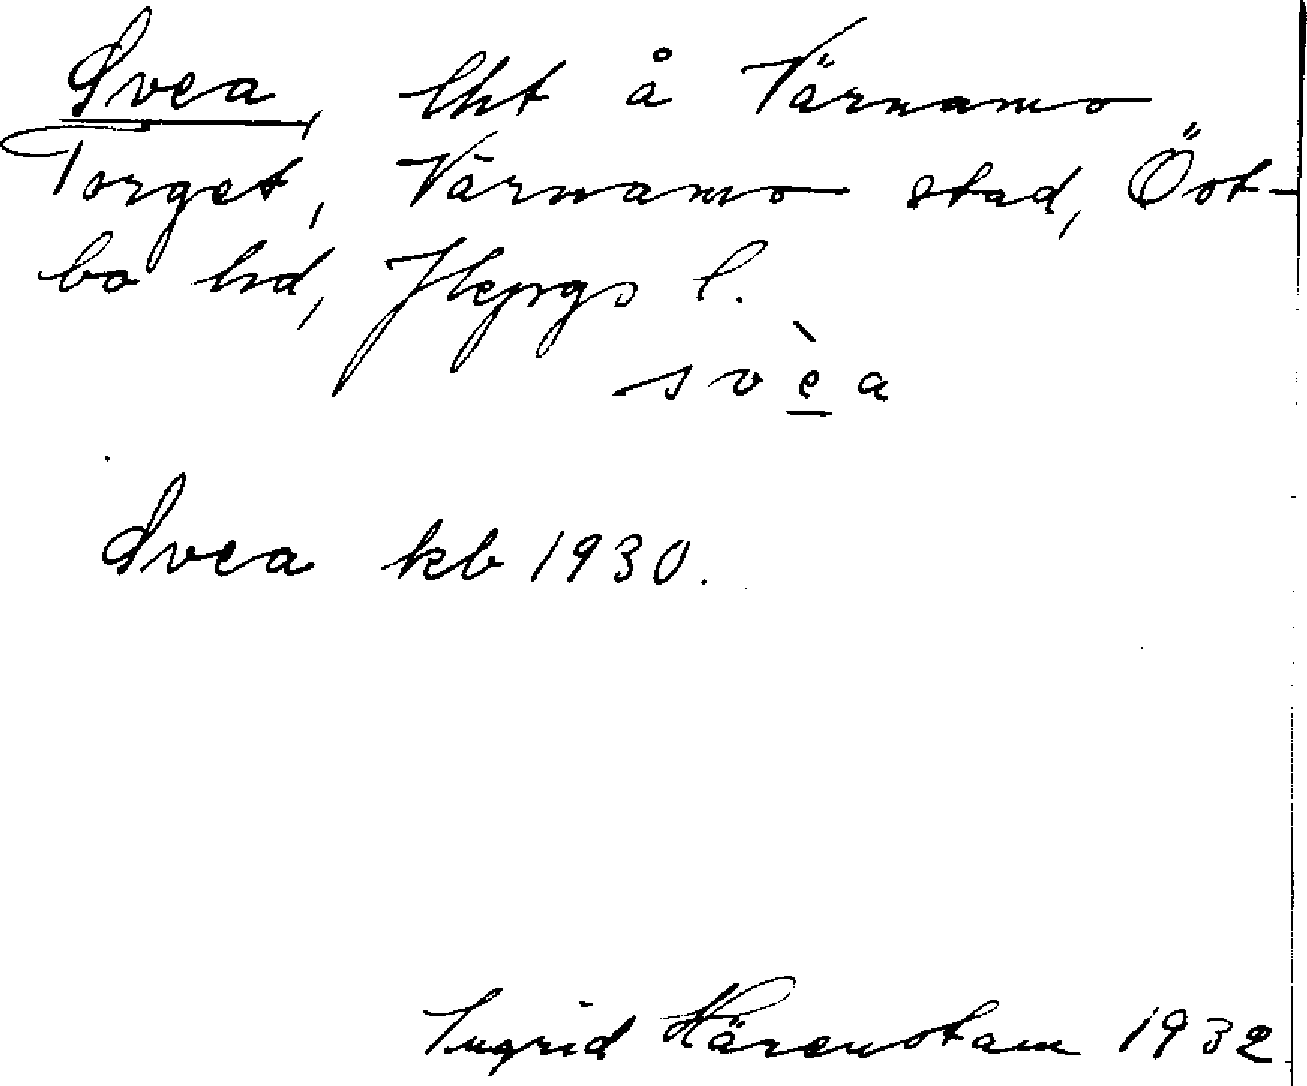 Svea, lht å Värnamo
Torget, Värnamo stad, Öst-
bo hd, Jkpgs l.
svèa
Svea kb 1930.
Ingrid Härenstam 1932